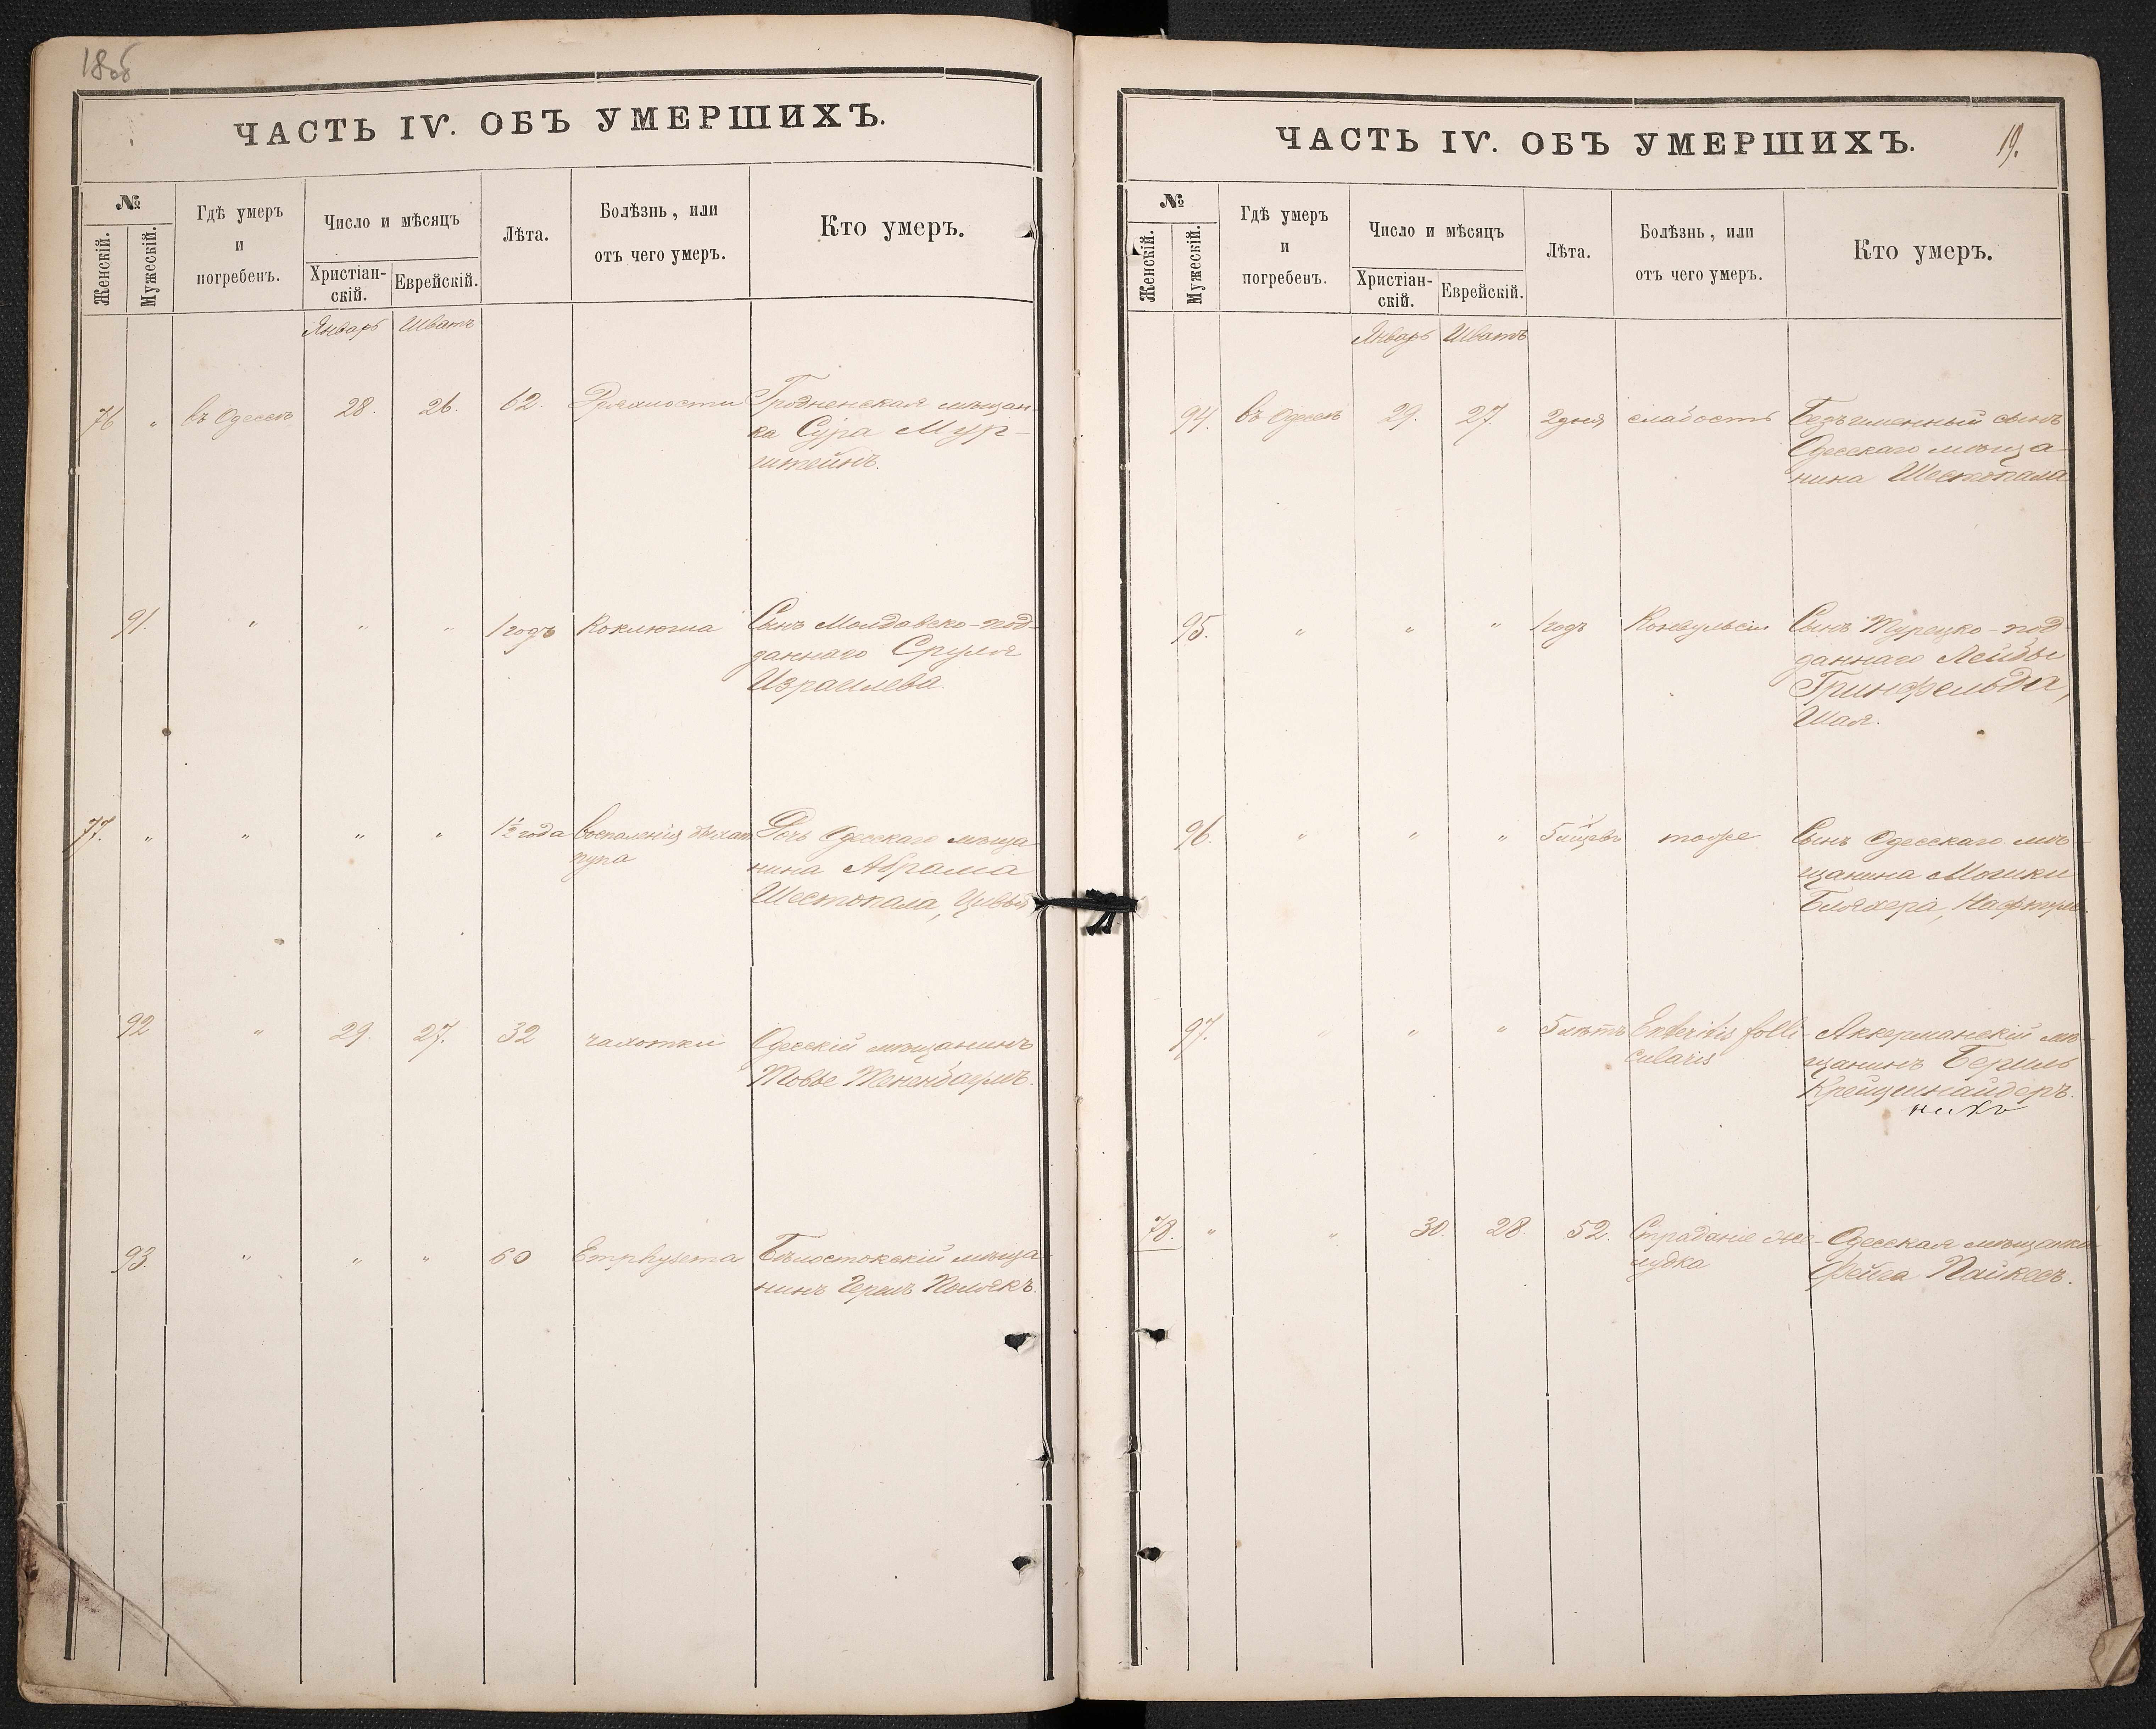 18об
ЧАСТЬ IV. ОБЪ УМЕРШИХЪ.
№
Женскій.
Мужескій.
Гдѣ умеръ
и
погребенъ.
Число и мѣсяцъ
Христіан-
скій.
Еврейскій.
Лѣта.
Болѣзнь, или
отъ чего умеръ.
Кто умеръ.
Январь Шватъ
76 " въ Одессѣ 28. 26. 62. Дряхлости Гродненская мѣщан-
ка Сура Мур-
штейнъ.
91. " " " 1 годъ Коклюша Сынъ Молдавско-под-
даннаго Сруля
Израилева.
77. " " " " 1½ года Воспаленія дыхат Дочь Одесскаго мѣща
нина Абрама
Шестопала, Цивья
92 " 29. 27. 32 чахотки Одесскій мѣщанинъ
Товье Тененбаумъ.
93. " " " 60 Emphysema Бѣлостокскій мѣща-
нинъ Герцъ Полякъ.
ЧАСТЬ IV. ОБЪ УМЕРШИХЪ.
19.
№
Женскій.
Мужескій.
Гдѣ умеръ
и
погребенъ.
Число и мѣсяцъ
Христіан-
скій.
Еврейскій.
Лѣта.
Болѣзнь, или
отъ чего умеръ.
Кто умеръ.
Январь Шватъ
94. въ Одессѣ 29. 27. 2 дня слабость Безъименный сынъ
Одесскаго мѣща-
нина Шестопала
95. " " " 1 годъ Конвульсіи Сынъ Турецко-под-
даннаго Лейбы
Гринфельда,
Шая.
96. " " " 5 мѣцевъ тоже Сынъ Одесскаго мѣ-
щанина Мошки
Бляхера, Нафтула.
97. " " " 5 лѣтъ Enteritis folli- Аккерманскій мѣ-
cularis щанинъ Берилъ
Крейцшнайдеръ.
78. " " 30. 28. 52. Страданіе же- Одесская мѣщанка
лудка Фейга Пайкесъ.